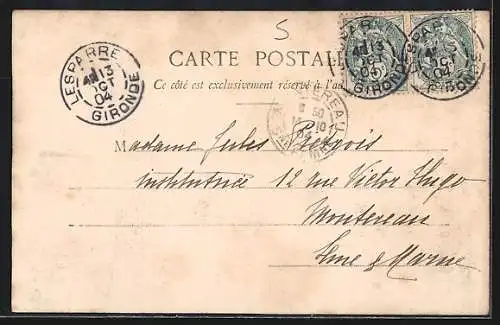 S
CARTE POSTALE
Ce côté est exclusivement réservé à l'ad
LESPARRE
4E 13
OCT
04
GIRONDE
LESPAR
13
OCT
04
GIRONDE
LESPAR
OCT
04
EREAU
8 50
14 10
Madame Jules
institutrice 12 rue Victor Hugo
Montereau
Seine & Marne